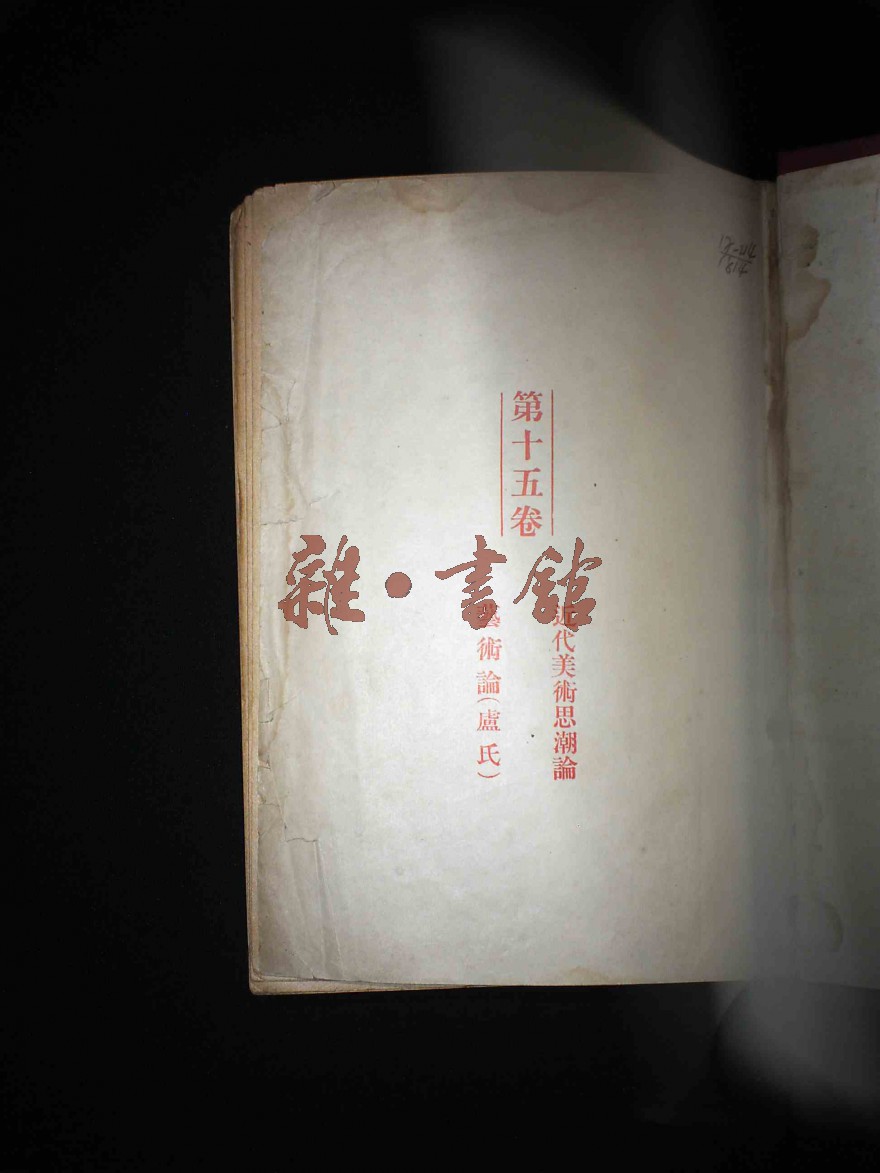 第十五卷
近代美術思潮論
藝術論（盧氏）
雜·書館